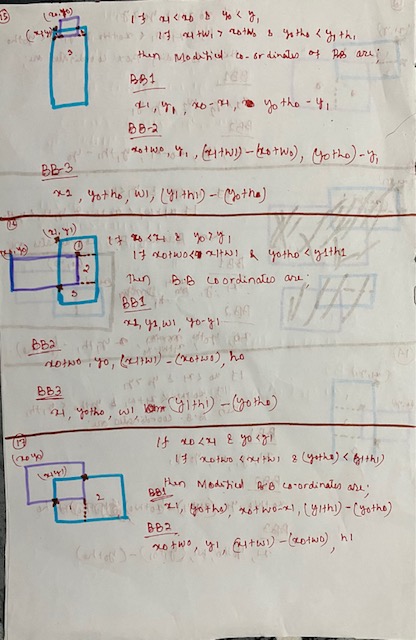 (15)
(x0,y0)
(x1,y1)
3
If x1<x0 & y0<y1
If x1+w1 > x0+w0 & y0+h0 < y1+h1
then Modified co-ordinates of BB are;
BB1
x1, y1, x0-x1, y0+h0-y1
BB-2
x0+w0, y1, (x1+w1)-(x0+w0), (y0+h0)-y1
BB-3
x1, y0+h0, w1, (y1+h1)-(y0+h0)
(16)
(x1,y1)
(x0,y0)
1
2
3
If x0<x1 & y0>y1
If x0+w0<x1+w1 & y0+h0 < y1+h1
Then B.B co ordinates are;
BB1
x1, y1, w1, y0-y1
BB2
x0+w0, y0, (x1+w1)-(x0+w0), h0
BB3
x1, y0+h0, w1, (y1+h1)-(y0+h0)
(17)
(x0,y0)
(x1,y1)
2
If x0<x1 & y0<y1
If x0+w0 < x1+w1 & (y0+h0) < (y1+h1)
then Modified B.B co-ordinates are;
BB1
x1, (y0+h0), x0+w0-x1, (y1+h1)-(y0+h0)
BB2
x0+w0, y1, (x1+w1)-(x0+w0), h1